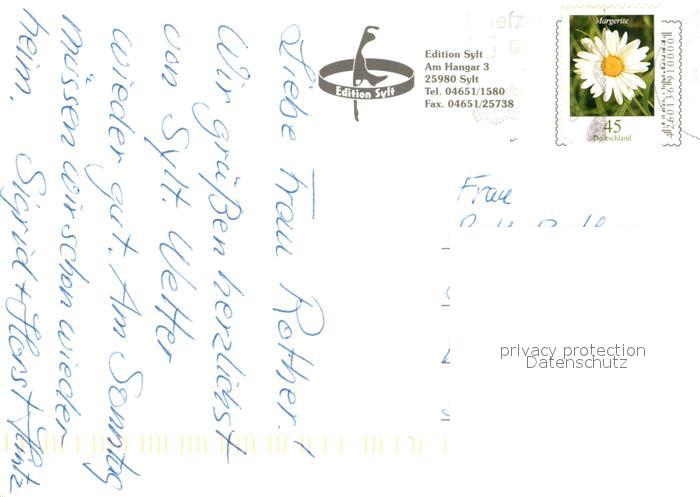 Liebe Frau Rother!
Wir grüßen herzlichst
von Sylt. Wetter
wieder gut. Am Sonntag
müssen wir schon wieder
heim.
Sigrid + Horst
Edition Sylt
Edition Sylt
Am Hangar 3
25980 Sylt
Tel. 04651/1580
Fax. 04651/25738
Margerite
45
Deutschland
Frau
privacy protection
Datenschutz